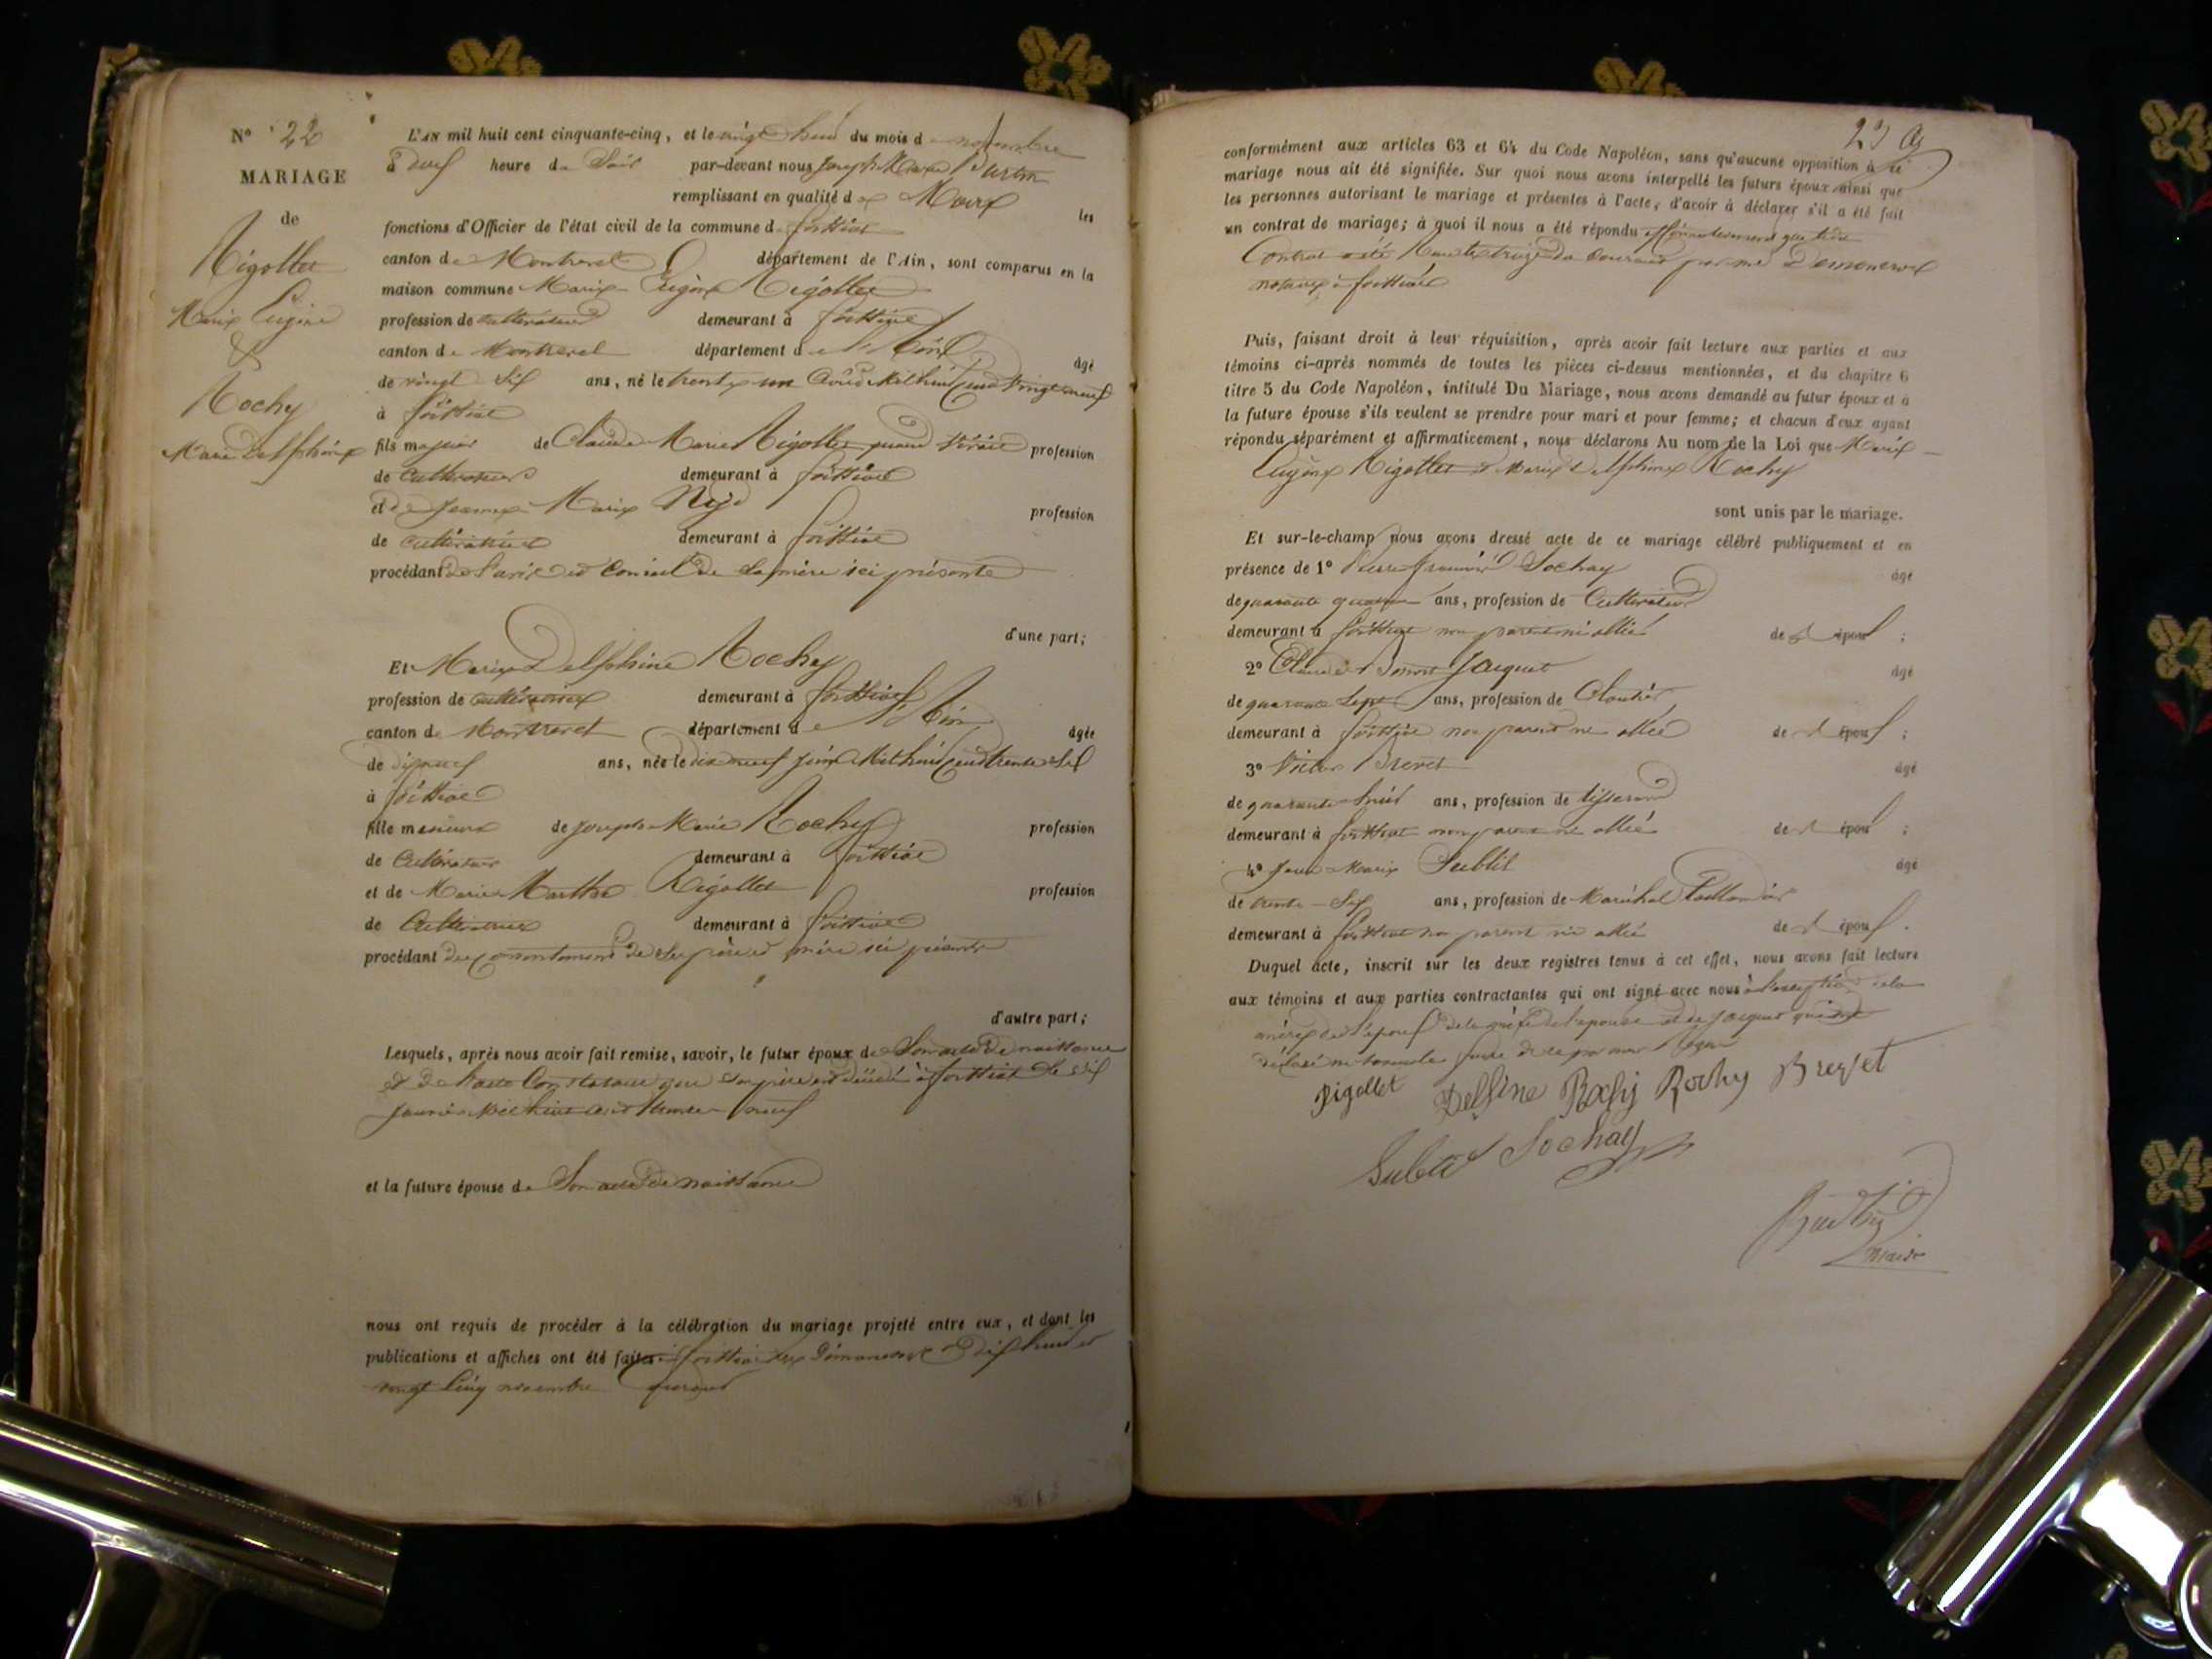 N° 22
MARIAGE
de
Rigollet
Marie Eugène
&
Rochy
Marie Delphine
L'AN mil huit cent cinquante-cinq, et le vingt huit du mois de novembre
à du heure du Soir par-devant nous Joseph Marie
remplissant en qualité de Maire les
fonctions d'Officier de l'état civil de la commune de foissiat
canton de Montrevel département de l'Ain, sont comparus en la
maison commune Marie Eugène Rigollet
profession de cultivateur demeurant à foissiat
canton de Montrevel département de l'Ain âgé
de vingt six ans, né le trente un Août Mil huit Cent Vingt neuf
à foissiat
fils majeur de Claude Marie Rigollet quand vivait profession
de cultivateur demeurant à foissiat
et de Jeanne Marie profession
de cultivatrice demeurant à foissiat
procédant de l'avis et conseil de Sa mère ici présente
d'une part;
Et Marie Delphine Rochy
profession de cultivatrice demeurant à foissiat
canton de Montrevel département de l'Ain âgée
de dix neuf ans, née le dix neuf juin Mil huit Cent trente Six
à foissiat
fille mineure de Joseph Marie Rochy profession
de Cultivateur demeurant à foissiat
et de Marie Marthe Rigollet profession
de Cultivatrice demeurant à foissiat
procédant du consentement de Ses père et mère ici présents
d'autre part;
Lesquels, après nous avoir fait remise, savoir, le futur époux de Son acte de naissance
et de l'acte Constatant que Son père est décédé à foissiat le six
janvier Mil huit cent trente neuf
et la future épouse de Son acte de naissance
nous ont requis de procéder à la célébration du mariage projeté entre eux, et dont les
publications et affiches ont été faites à foissiat les Dimanches dix huit et
vingt cinq novembre courant
conformément aux articles 63 et 64 du Code Napoléon, sans qu'aucune opposition à ce
mariage nous ait été signifiée. Sur quoi nous avons interpellé les futurs époux ainsi que
les personnes autorisant le mariage et présentes à l'acte, d'avoir à déclarer s'il a été fait
un contrat de mariage; à quoi il nous a été répondu affirmativement que
Contrat a été du Courant par me
notaire à foissiat
Puis, faisant droit à leur réquisition, après avoir fait lecture aux parties et aux
témoins ci-après nommés de toutes les pièces ci-dessus mentionnées, et du chapitre 6
titre 5 du Code Napoléon, intitulé Du Mariage, nous avons demandé au futur époux et à
la future épouse s'ils veulent se prendre pour mari et pour femme; et chacun d'eux ayant
répondu séparément et affirmativement, nous déclarons Au nom de la Loi que Marie
Eugène Rigollet et Marie Delphine Rochy
sont unis par le mariage.
Et sur-le-champ nous avons dressé acte de ce mariage célébré publiquement et en
présence de 1° Pierre Sochay âgé
de quarante quatre ans, profession de Cultivateur
demeurant à foissiat non parent ni allié de l'époux ;
2° Claude Benoit Jacquet âgé
de quarante Sept ans, profession de
demeurant à foissiat non parent ni allié de l'époux ;
3° Victor Brevet âgé
de quarante huit ans, profession de tisserand
demeurant à foissiat non parent ni allié de l'époux ;
4° Jean Marie Subtil âgé
de trente Six ans, profession de Maréchal Taillandier
demeurant à foissiat non parent ni allié de l'époux .
Duquel acte, inscrit sur les deux registres tenus à cet effet, nous avons fait lecture
aux témoins et aux parties contractantes qui ont signé avec nous à l'exception de la
mère de l'époux de la mère de l'épouse et de Jacquet qui ont
déclaré ne savoir le faire de ce par nous requis
Rigollet Delfine Rochy Brevet
Subtil Sochay
maire